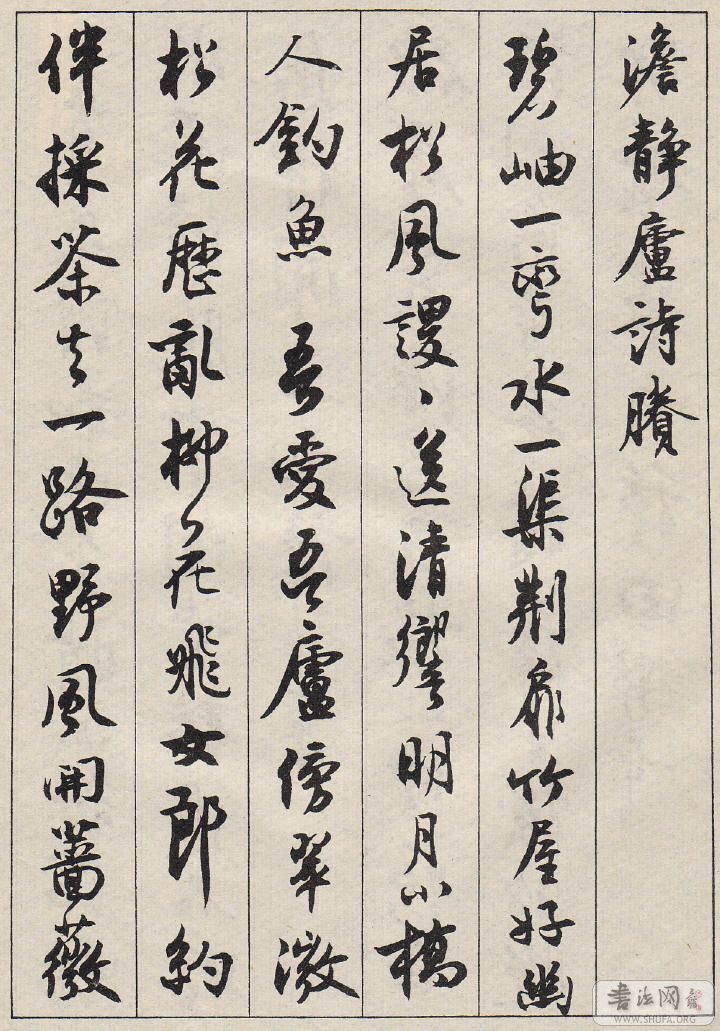 澹静廬詩賸
碧岫一彎水一渠荆扉竹屋好幽
居松風謖、送清響明月小橋
人釣魚 吾愛吾廬傍翠微
松花歷亂柳花飛女郎約
伴採茶去一路野風開薔薇
书法网
WWW.SHUFA.ORG